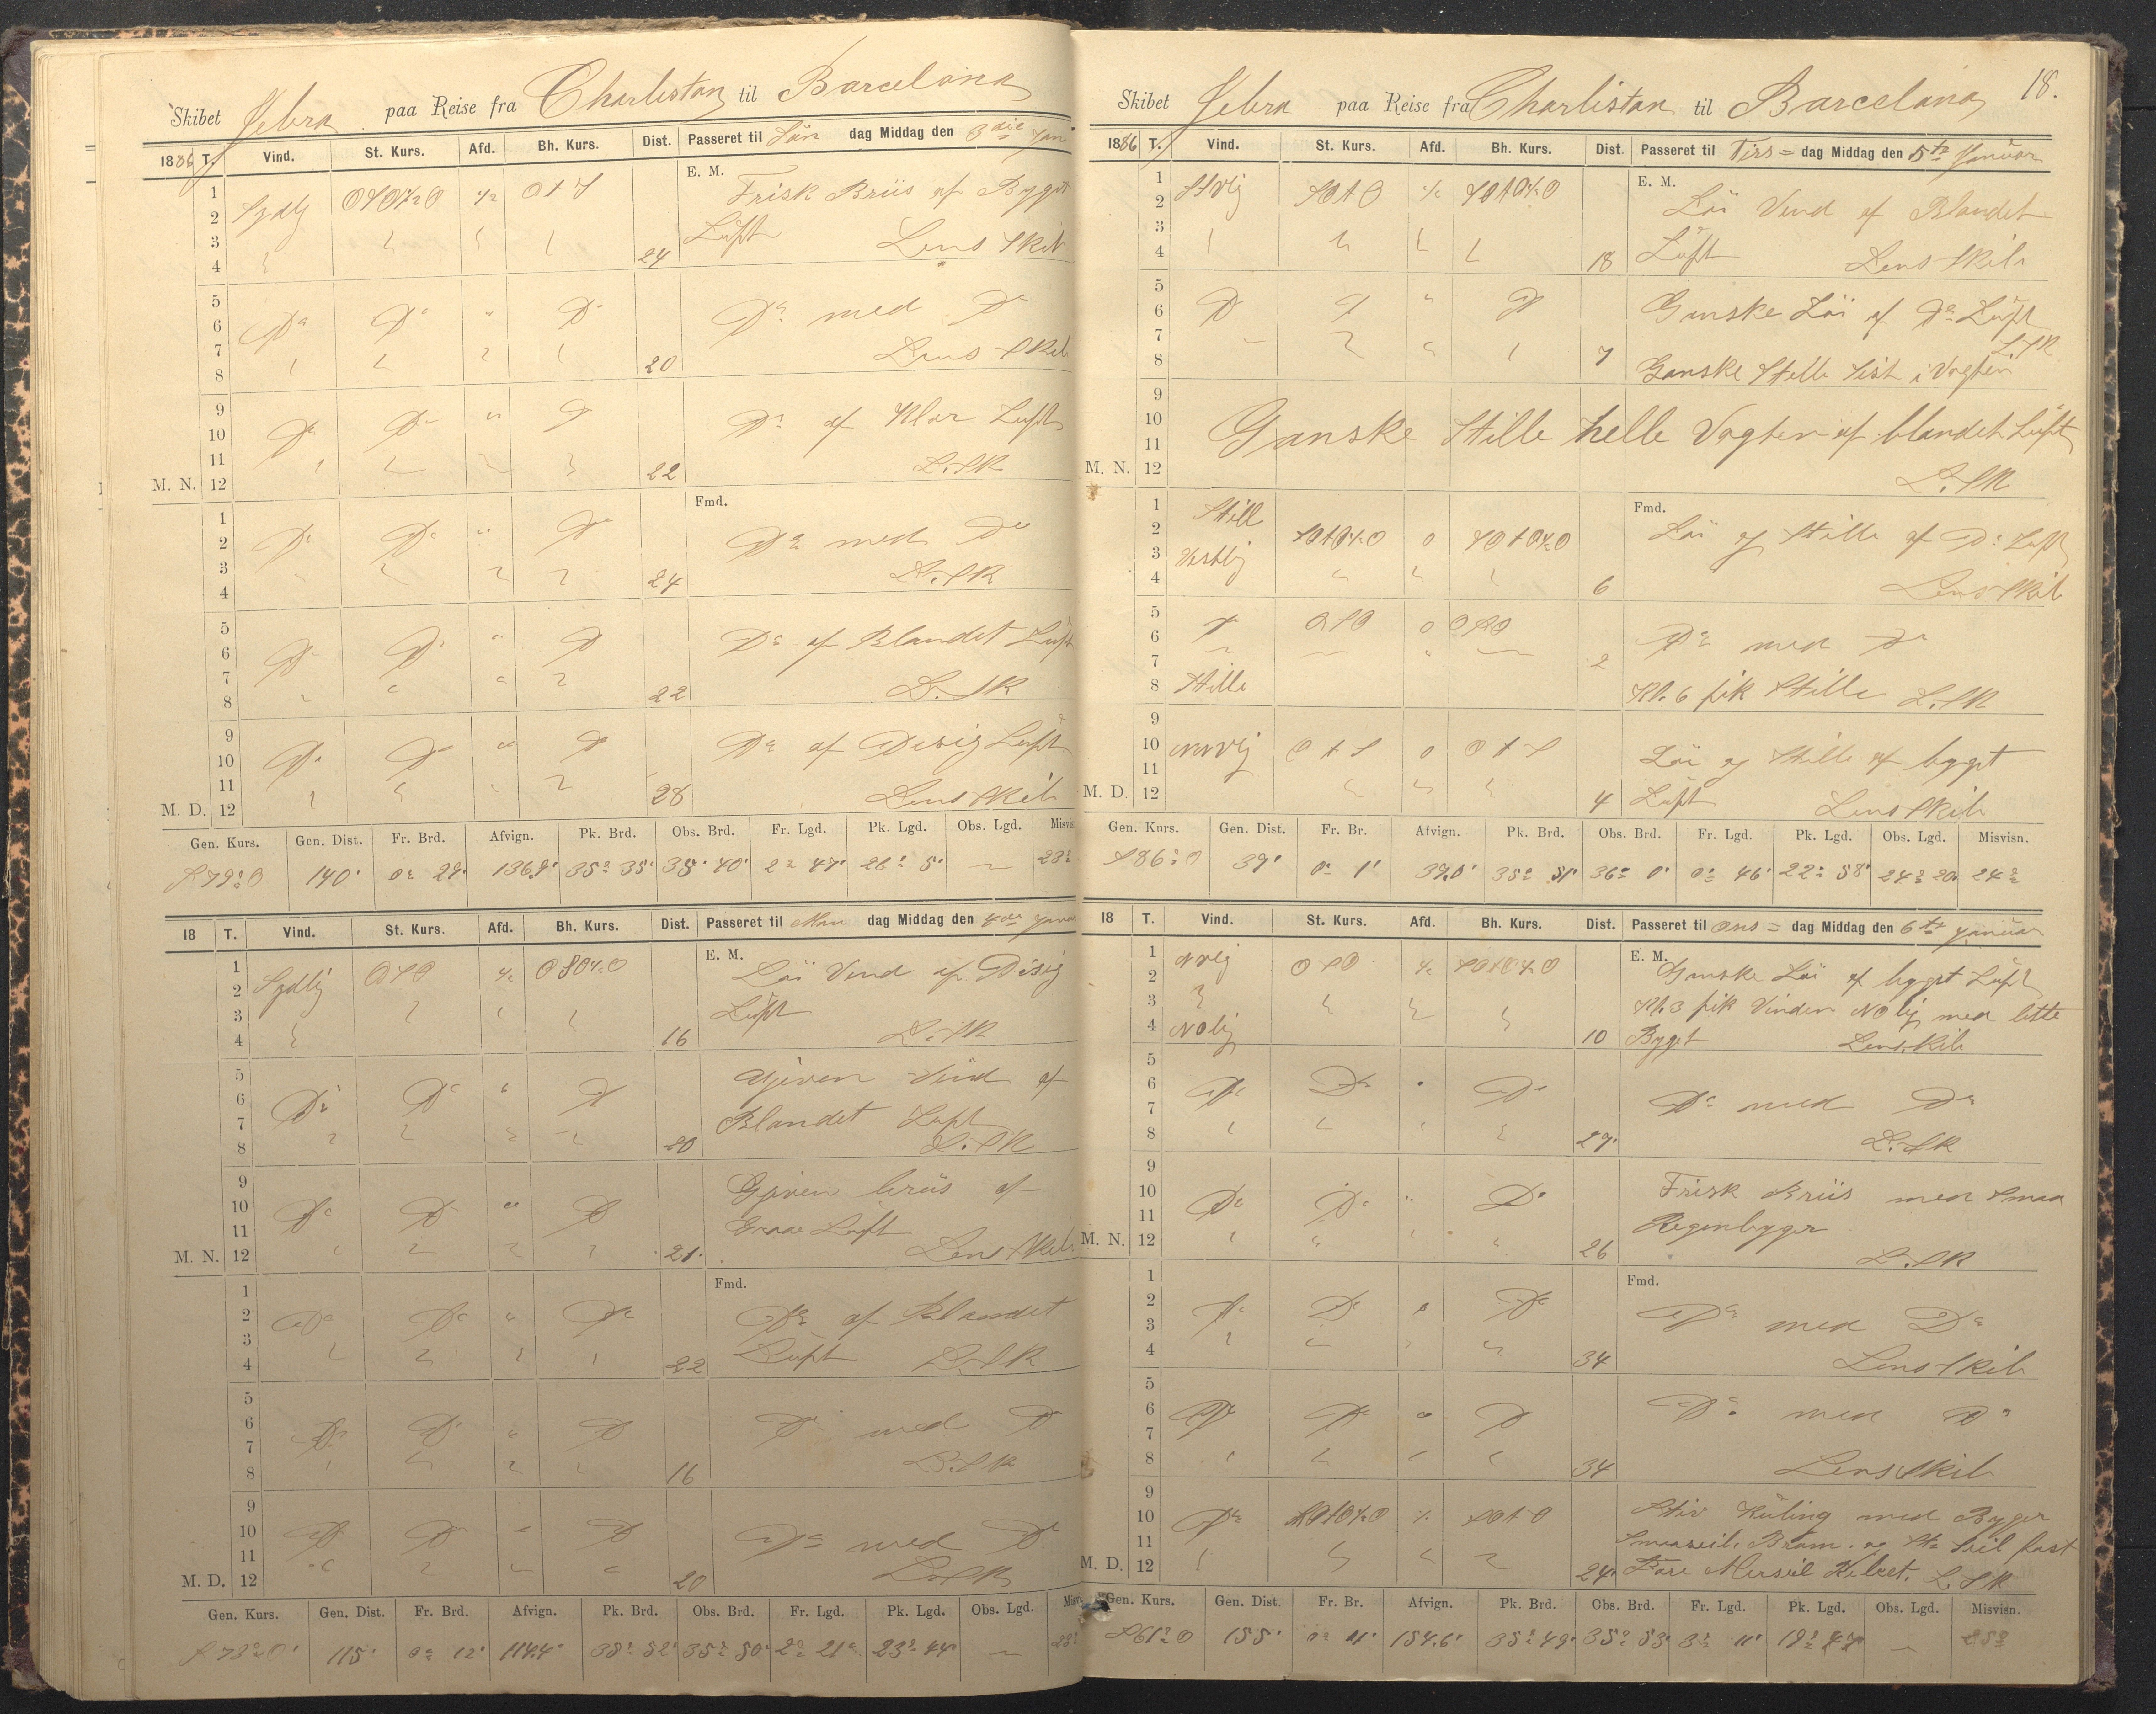 Skibet Jebra paa Reise fra Charlistan til Barcelona
1886 T. Vind. St. Kurs. Afd. Bh. Kurs. Dist. Passeret til Søn dag Middag den 3die Jan
E. M.
1 Frisk Briis af Bygget
2 Sydlig
3 Luft Lens Skib
4 24
5
6 Do Do " Do Do med Do
7 Lens Skib
8 20
9
10 Do Do " Do Do af Klar Luft
11 L. SK
M. N. 12 22
Fmd.
1
2 Do Do " Do Do med Do
3 L. SK
4 24
5
6 Do Do " Do Do af Blandet Luft
7
8 22 L. SK
9
10 Do Do " Do Do af Disig Luft
11
M. D. 12 28 Lens Skib
Gen. Kurs. Gen. Dist. Fr. Brd. Afvign. Pk. Brd. Obs. Brd. Fr. Lgd. Pk. Lgd. Obs. Lgd. Misvis
S 79° O 140' 0° 29' 136,9' 35° 35' 35° 40' 2° 47' 26° 5' — 23°
18 T. Vind. St. Kurs. Afd. Bh. Kurs. Dist. Passeret til Man dag Middag den 4de Janu
E. M.
1 Løi Vind af Disig
2 Sydlig OSO
3 Luft
4 16 L. SK
5 Gjæven Vind af
6 Do Do " Do
7 Blandet Luft
8 20 L. SK
9 Gjæven briis af
10 Do Do " Do
11 Graae Luft
M. N. 12 21 Lens Skib
Fmd.
1
2 Do Do " Do Do af Blandet
3
4 22 Luft L. SK
5
6 Do Do " Do Do med Do
7
8 16 L. SK
9
10 Do Do " Do Do med Do
11
M. D. 12 20 L. SK
Gen. Kurs. Gen. Dist. Fr. Brd. Afvign. Pk. Brd. Obs. Brd. Fr. Lgd. Pk. Lgd. Obs. Lgd. Misvi
S 73° O 115' 0° 12' 114,4' 35° 52' 35° 50' 2° 21' 23° 44' —
18.
Skibet Jebra paa Reise fra Charlistan til Barcelona
1886 T. Vind. St. Kurs. Afd. Bh. Kurs. Dist. Passeret til Tirs= dag Middag den 5te Januar
E. M.
1 Løi Vind af Blandet
2 SOtO
3
4 18 Luft Lens Skib
5
6 Do Do " Do Ganske Løi af Do Luft
7 L. SK
8 7 Ganske Stille sist i Vagten
9
10 Ganske Stille helle Vagten af blandet Luft
11
M. N. 12 L. SK
Fmd.
1 Still
2 Løi og Stille af Do Luft
3 Vestlig
4 6 Lens Skib
5
6 Do OSO 0 OSO Do med Do
7 2
8 Stille Kl. 6 fik Stille L. SK
9
10 NNVlig OtS 0 OtS Løi og Stille af bygget
11
M. D. 12 4 Luft Lens Skib
Gen. Kurs. Gen. Dist. Fr. Br. Afvign. Pk. Brd. Obs. Brd. Fr. Lgd. Pk. Lgd. Obs. Lgd. Misvisn.
S 86° O 39' 0° 1' 39,0' 35° 51' 36° 0' 0° 46' 22° 58' 24° 20' 24°
18 T. Vind. St. Kurs. Afd. Bh. Kurs. Dist. Passeret til Ons= dag Middag den 6te Januar
E. M.
1 Nvlig Ganske Løi af bygget Luft
2 OSO
3 Kl. 3 fik Vinden NOlig med lette
4 NOlig 10 Byget Lens Skib
5
6 Do Do " Do
7 Do med Do
8 27 L. SK
9 Frisk Briis med Smaa
10 Do Do " Do
11 Regenbyger
M. N. 12 26 L. SK
Fmd.
1
2 Do Do " Do Do med Do
3
4 34 Lens Skib
5
6 Do Do " Do Do med Do
7
8 34 Lens Skib
9
10 Do Stiv Kuling med Byger
11 Smaaseil. Bram. og Seil fast
M. D. 12 24 Fore Merseil L. SK
Gen. Kurs. Gen. Dist. Fr. Br. Afvign. Pk. Brd. Obs. Brd. Fr. Lgd. Pk. Lgd. Obs. Lgd. Misvisn.
S 61° O 155' 154,6' 35° 49' 35° 53' 3° 11' —